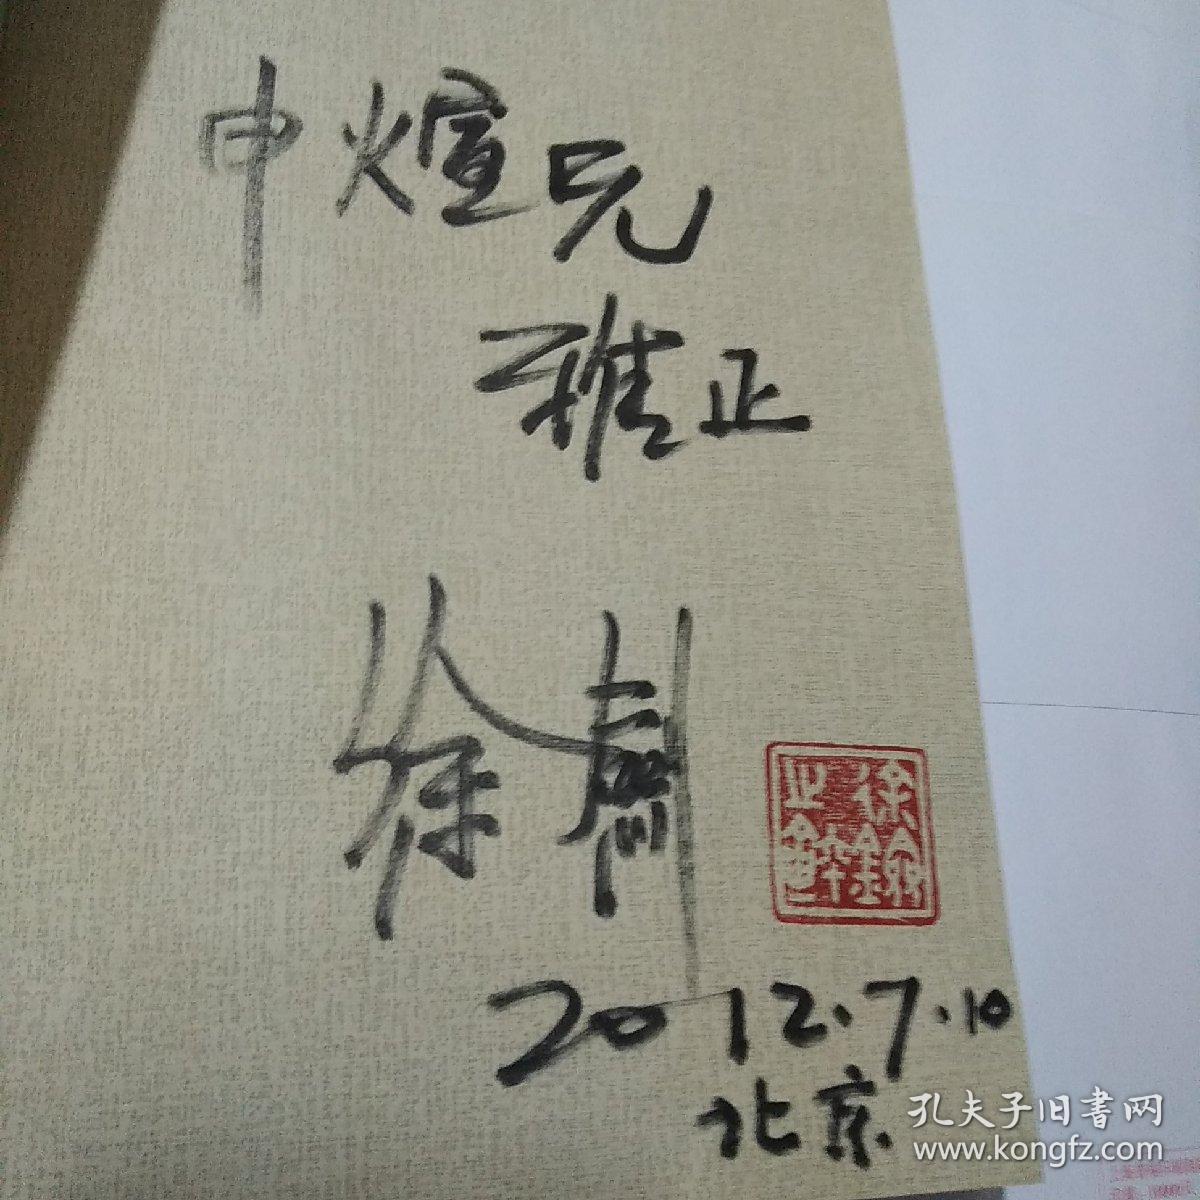 申煊兄
雅正
徐剑
2012.7.10
北京
孔夫子旧书网
www.kongfz.com